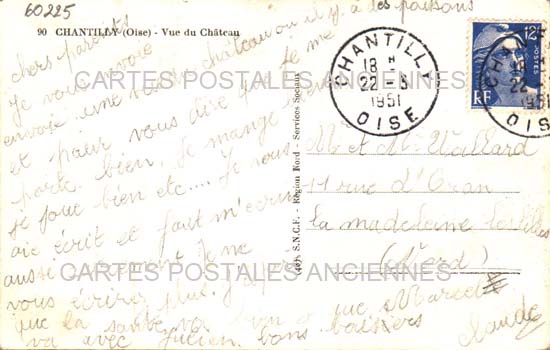 60225
90 CHANTILLY (Oise) - Vue du Château
chers parents
Je vous envoie
envoie une vue du château ou il y a des poissons
et pour vous dire que Je me
porte bien, Je mange bien
Je joue bien etc.... Je vous
aie écrit et faut m'écrire
aussi Je ne
vous écrirez plus.
que la santé va bien que Marcel
va avec Lucien bons baisiers
Claude
(40). S.N.C.F. - Région Nord - Services Sociaux
CHANTILLY
18 H
22 - 5
1951
OISE
12F
POSTES
RF
CHANTILLY
18
22
1951
OISE
M et Mme Wallard
11 rue d'Oran
la madeleine les lilles
(Nord)
CARTES POSTALES ANCIENNES
CARTES POSTALES ANCIENNES